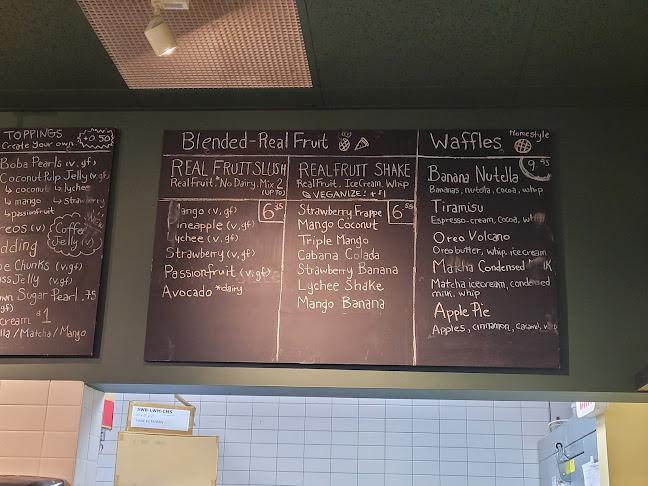 TOPPINGS
Create your own +0.50
Boba Pearls (v, gf)
Coconut Pulp Jelly (v, gf)
↳ coconut ↳ lychee
↳ mango ↳ strawberry
↳ passionfruit
Coffee
Jelly (v)
(v, gf)
(v, gf)
Sugar Pearl .75
$1
/ Matcha / Mango
Blended-Real Fruit
REAL FRUIT SLUSH
Real Fruit *No Dairy, Mix 2
(UP TO)
6.35
Mango (v, gf)
Pineapple (v, gf)
Lychee (v, gf)
Strawberry (v, gf)
Passionfruit (v, gf)
Avocado *dairy
REAL FRUIT SHAKE
Real Fruit, Ice Cream, Whip
VEGANIZE! +$1
Strawberry Frappe
Mango Coconut
Triple Mango
Cabana Colada
Strawberry Banana
Lychee Shake
Mango Banana
Waffles Homestyle
Banana Nutella
Bananas, nutella, cocoa, whip
Tiramisu
Espresso-cream, Cocoa, whip
Oreo Volcano
Oreo butter, whip, ice cream
Matcha Condensed Milk
Matcha icecream, condensed
milk, whip
Apple Pie
Apples, cinnamon, Caramel, whip